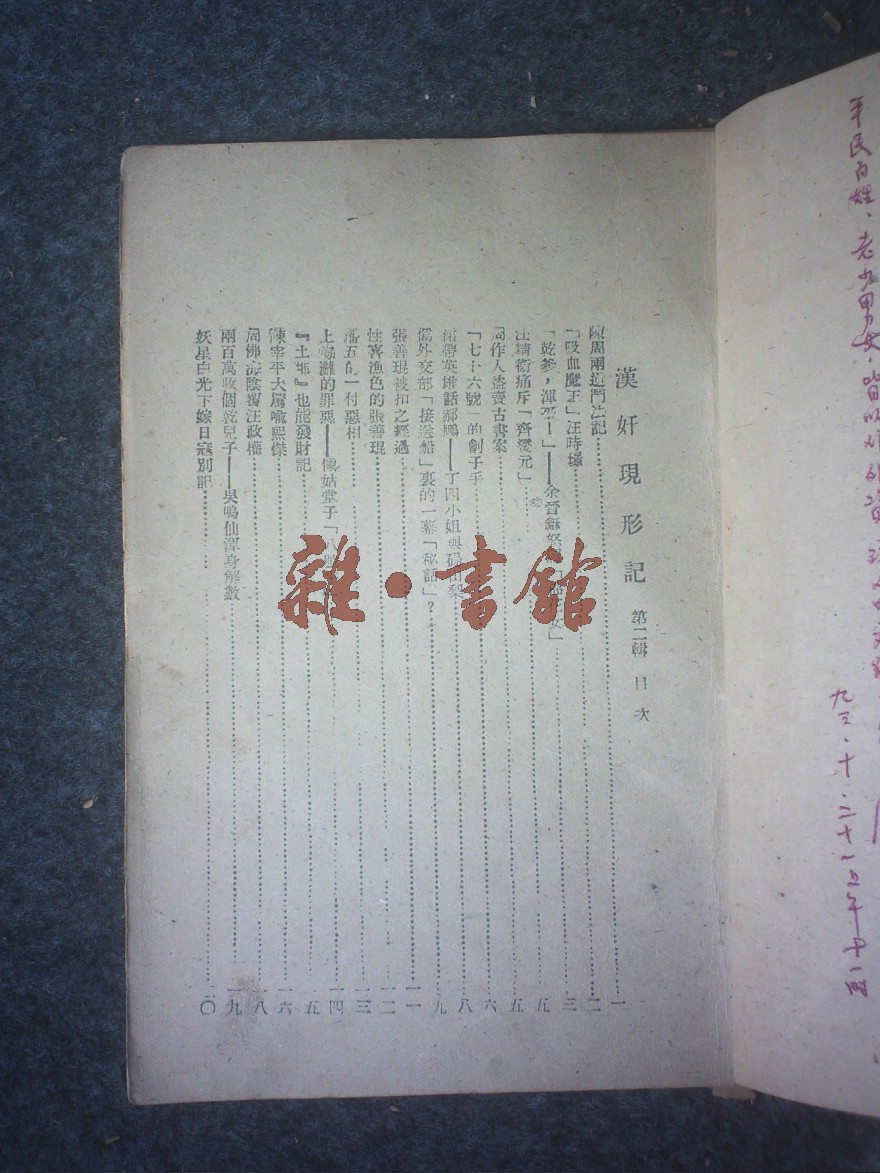 平民百姓、老少男女，皆
九三·十·二十一
漢奸現形記 第二輯 目次
陳周兩逆鬥法記 一
「吸血魔王」汪時璟 二
「乾爹，渾蛋！」——余晉龢 女」 三
汪精衛痛斥「齊燮元」 五
周作人盜賣古書案 五
「七十六號」的劊子手 六
裙帶英雄話郝鵬——丁四小姐與碭山梨 八
僞外交部「接送船」裏的一幕「秘話」？ 九
張善琨被扣之經過 一一
性喜漁色的張善琨 一二
潘五的一付惡相 一三
上海灘的罪惡——傢姑堂子「八 一四
『土地』也能發財記 一五
陳宰平大罵喻熙傑 一六
周佛海陰覆汪政權 一八
兩百萬收個乾兒子——吳鳴仙渾身解數 一九
妖星白光下嫁日寇別記 二〇
雜·書館